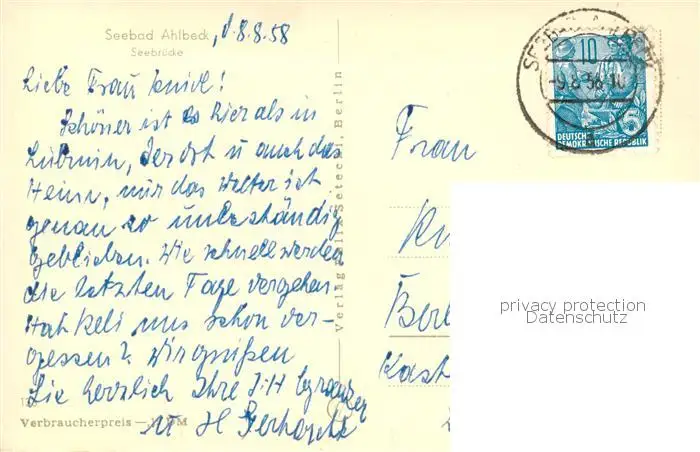 Seebad Ahlbeck, d. 8.8.58
Seebrücke
Liebe Frau
Schöner ist es hier als in
Lubmin, der Ort u auch das
Heim, nur das Wetter ist
genau so unbeständig
geblieben. Wie schnell werden
die letzten Tage vergehen.
Hat uns schon ver-
gessen? Wir grüßen
Sie herzlich Ihre
u H
Verbraucherpreis — DM
Verlag Felix Setecki, Berlin
Frau
Berl
Kast
10
5
DEUTSCHE
DEMOKRATISCHE REPUBLIK
-9.8.58.10
privacy protection
Datenschutz